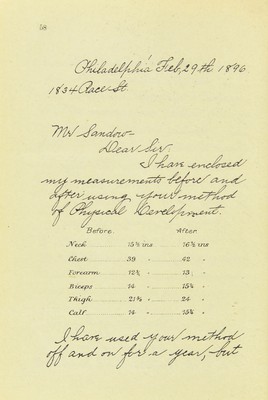 58
Philadelphia Feb, 29th 1896
1834 Race St.
Mr Sandow-
Dear Sir:
I have enclosed
my measurements before and
after using your method
of Physical Development.
Before. After.
Neck 15½ ins 16½ ins
Chest 39 " 42 "
Forearm 12¾ " 13 "
Biceps 14 " 15¾ "
Thigh 21½ " 24 "
Calf 14 " 15¾ "
I have used your method
off and on for a year, but